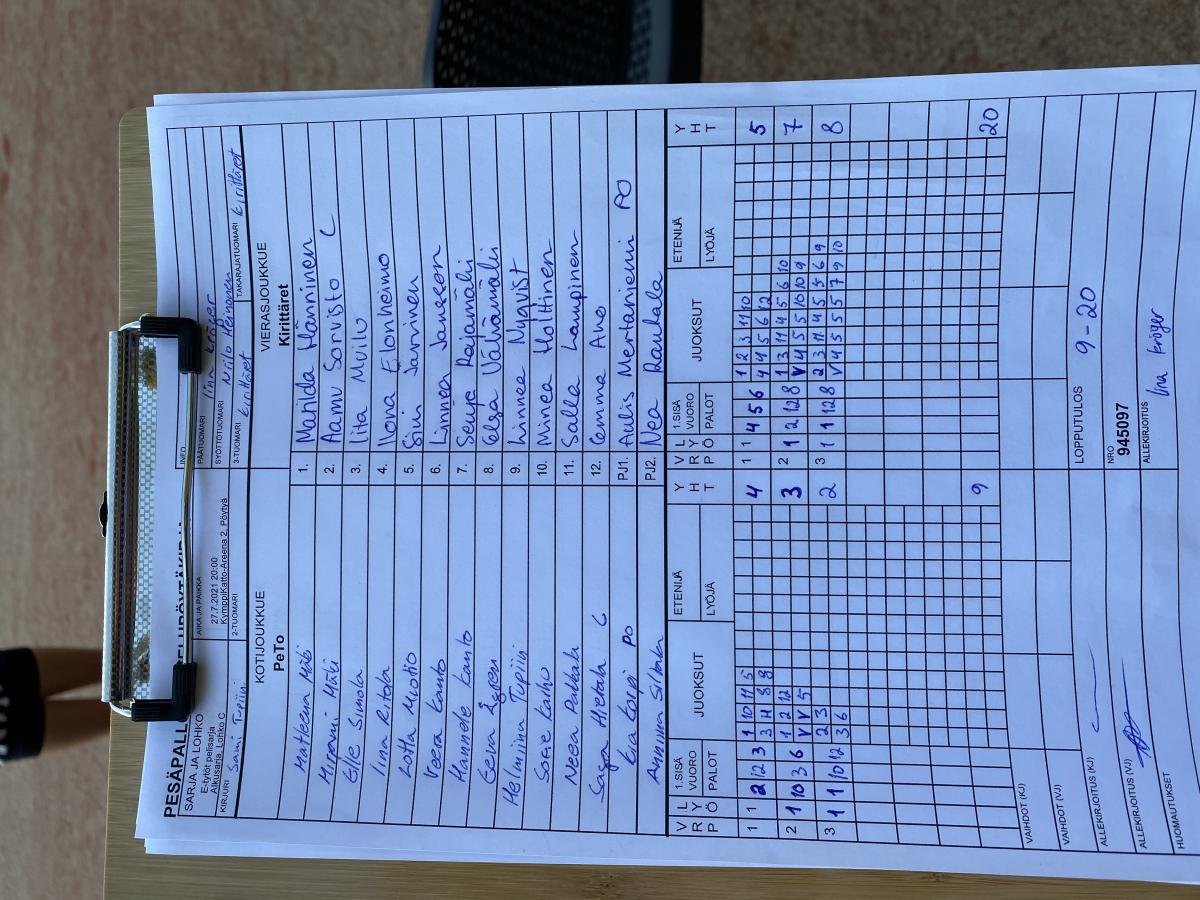 PESÄPALLO
SARJA JA LOHKO
E-tytöt pelisarja
Alkusarja, Lohko C
AIKA JA PAIKKA
27.7.2021 20:00
KymppiKatto-Areena 2, Pöytyä
INFO
PÄÄTUOMARI Iina Kröger
SYÖTTÖTUOMARI Niilo Heinonen
KIRJURI Sami Tupiin
2-TUOMARI
3-TUOMARI Kirittäret
TAKARAJATUOMARI Kirittäret
KOTIJOUKKUE
PeTo
VIERASJOUKKUE
Kirittäret
1. Matilda Hänninen
Mirjami Mäki 2. Aamu Sorvisto C
Elle Simola 3. Iita Muilu
Iina Ritola 4. Ilona Eilonheimo
Lotta Muotio 5. Sini Järvinen
Veera Kanto 6. Linnea Jonasson
Hannele Kanto 7. Senja Rajamäki
Eeva 8. Elsa Välvämäki
Helmiina Tupiin 9. Linnea Nyqvist
Sofie Karho 10. Minea Holttinen
Neea Pakkala 11. Salla Lampinen
Saga Hietala C 12. Emma Avo
Eia Korpi PO PJ1. Aulis Mertaniemi PO
Anniina Siltala PJ2. Nea Rauhala
VRP LYÖ 1.SISÄ VUORO PALOT JUOKSUT ETENIJÄ LYÖJÄ YHT VRP LYÖ 1.SISÄ VUORO PALOT JUOKSUT ETENIJÄ LYÖJÄ YHT
1 1 2 12 3 1 10 11 5 4 1 1 4 5 6 1 2 3 11 10 5
3 4 8 8 4 4 5 6 12
2 1 10 3 6 1 2 12 3 2 1 2 12 8 1 3 11 4 5 6 10 7
V V 5 V 4 5 5 10 10 9
3 1 1 10 12 2 3 2 3 1 1 12 8 2 3 11 4 5 5 6 9 8
3 6 V 4 5 5 5 7 9 10
9 20
VAIHDOT (KJ)
VAIHDOT (VJ)
LOPPUTULOS 9-20
ALLEKIRJOITUS (KJ)
NRO
945097
ALLEKIRJOITUS (VJ)
ALLEKIRJOITUS Iina Kröger
HUOMAUTUKSET